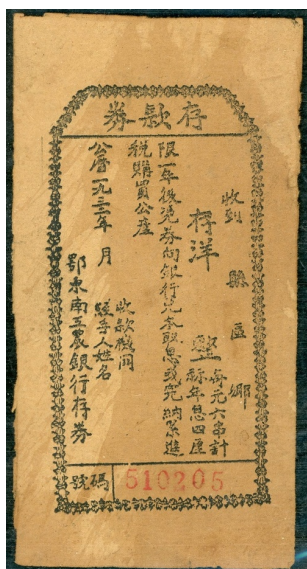 存款券
收到　縣　區　鄉
存洋　每元六串計
縣年息四厘
限一年後憑券向銀行兌本取息或完納累進
稅購買公產
公曆一九三二年　月
收款機關
經手人姓名
鄂東南工農銀行存券
號碼
510205